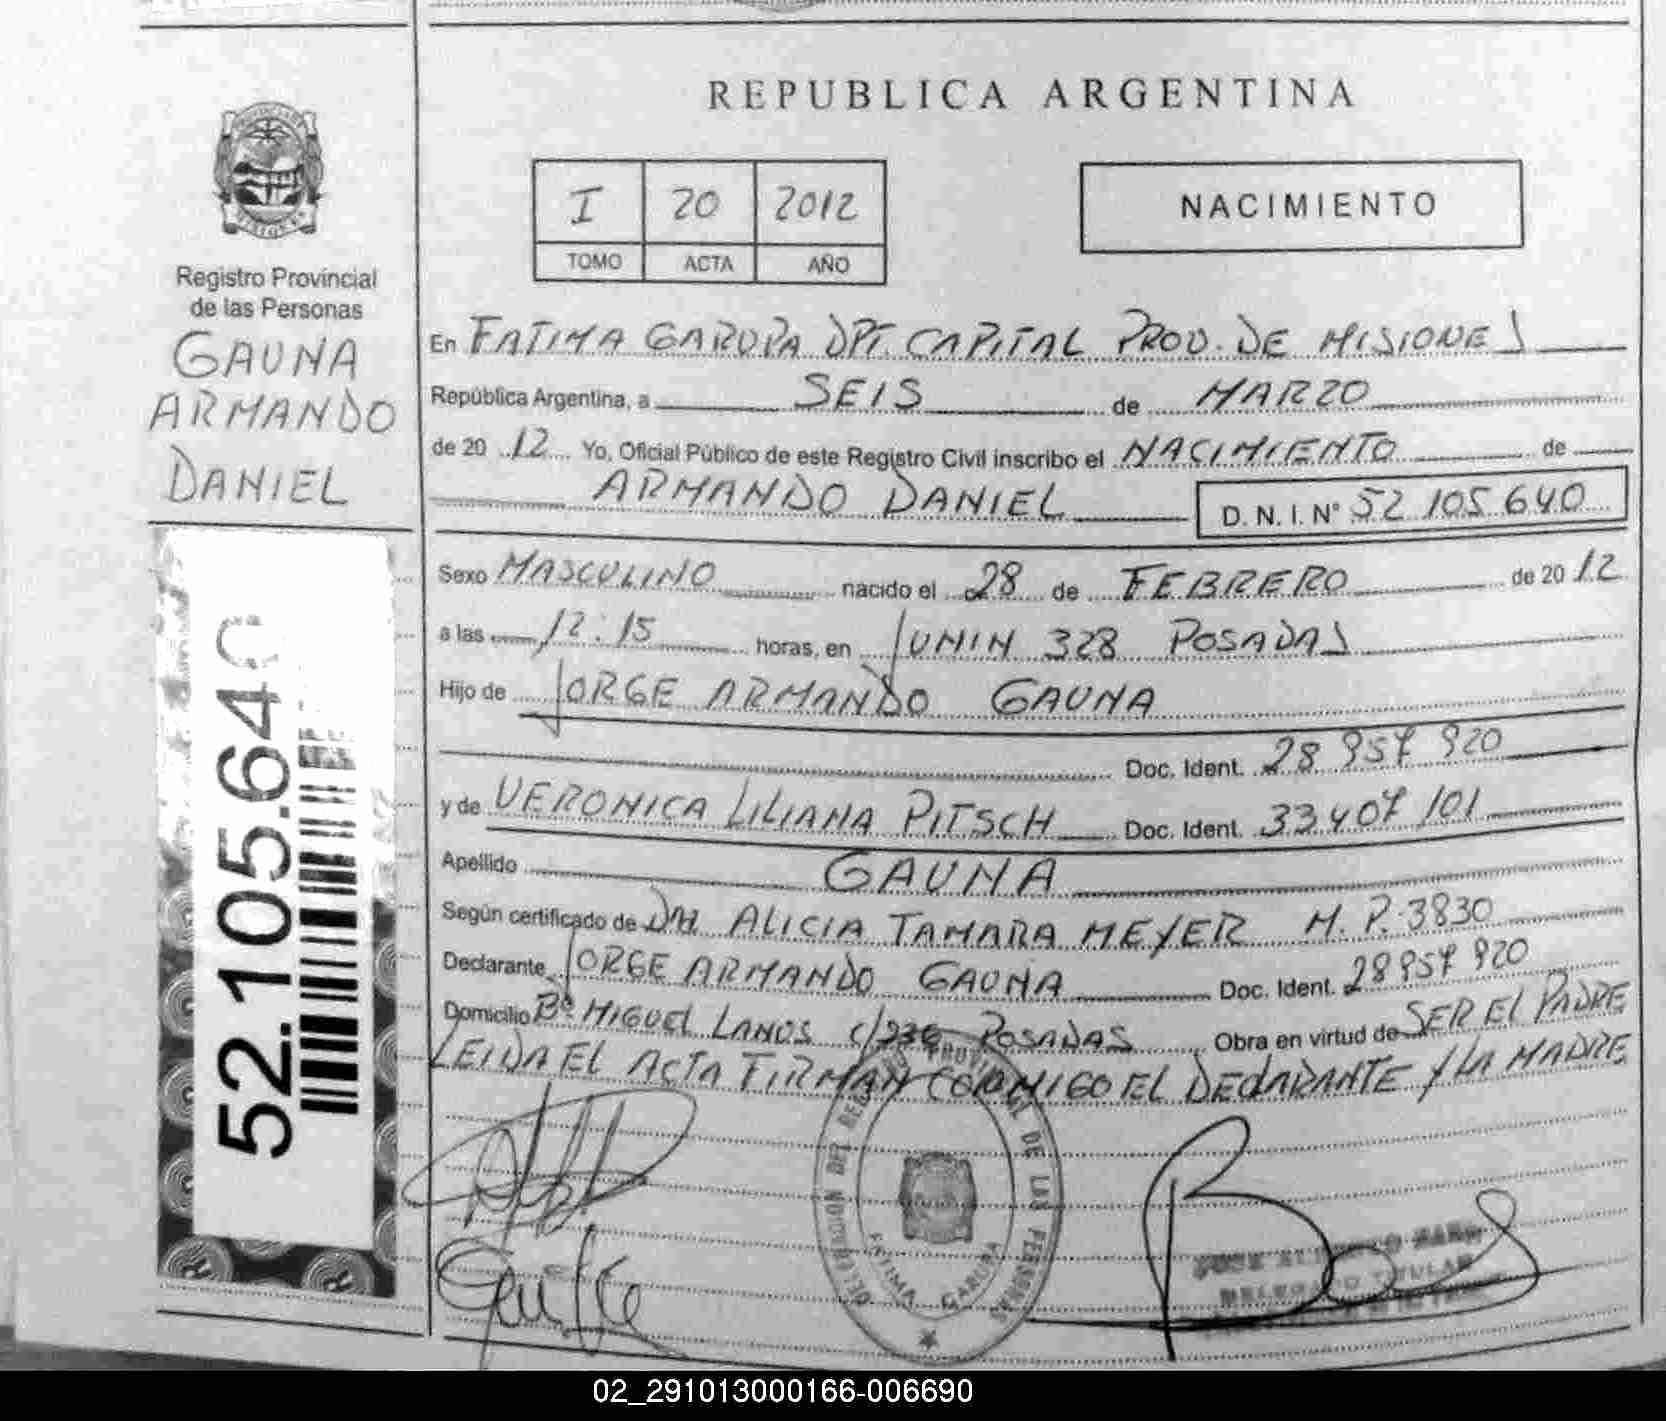 REPUBLICA ARGENTINA
I 20 2012
TOMO ACTA AÑO
NACIMIENTO
Registro Provincial
de las Personas
GAUNA
ARMANDO
DANIEL
52.105.640
En FATIMA GARUPA DPT. CAPITAL PROV. DE MISIONES
República Argentina, a SEIS de MARZO
de 2012 Yo, Oficial Público de este Registro Civil inscribo el NACIMIENTO de
ARMANDO DANIEL D. N. I. N° 52 105 640
Sexo MASCULINO nacido el 28 de FEBRERO de 2012
a las 12:15 horas, en JUNIN 328 POSADAS
Hijo de JORGE ARMANDO GAUNA
Doc. Ident. 28 957 920
y de VERONICA LILIANA PITSCH Doc. Ident. 33 407 101
Apellido GAUNA
Según certificado de DRA ALICIA TAMARA MEYER M.P. 3830
Declarante JORGE ARMANDO GAUNA Doc. Ident. 28957 920
Domicilio B° MIGUEL LANUS C/ POSADAS Obra en virtud de SER EL PADRE
LEIDA EL ACTA FIRMAN CONMIGO EL DECLARANTE Y LA MADRE
DELEGACION DEL REGISTRO PROVINCIAL DE LAS PERSONAS
FATIMA GARUPA
DELEGADO TITULAR
02_291013000166-006690